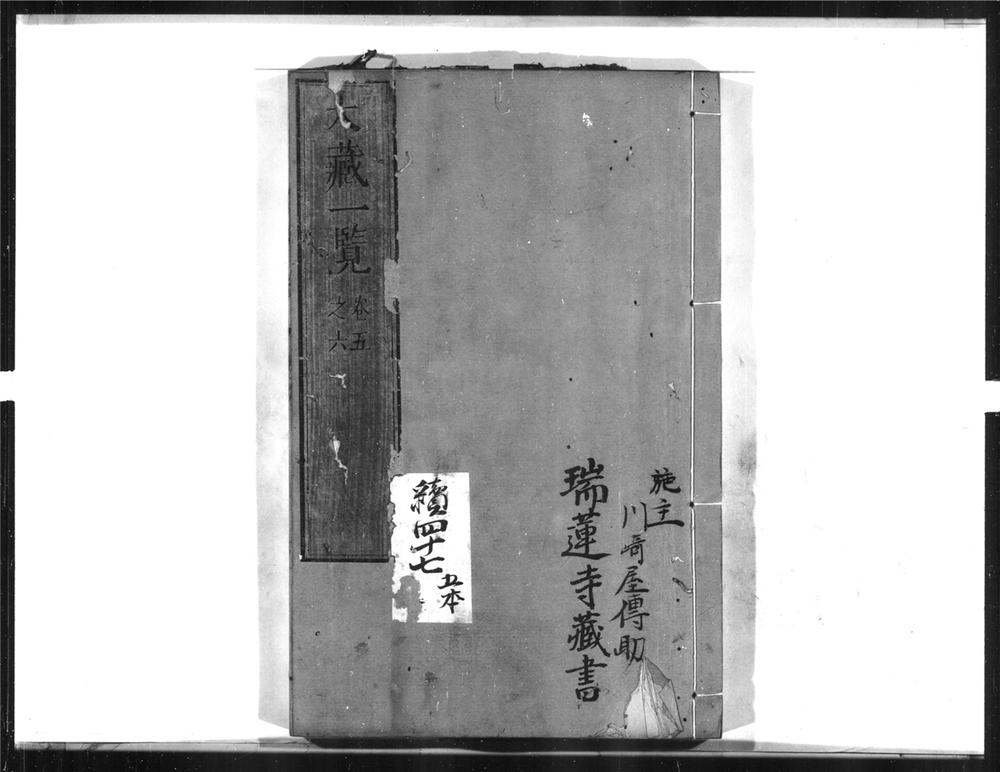 施主
川﨑屋傳助
瑞蓮寺藏書
續四十七
五本
大藏一覽
卷五
之六